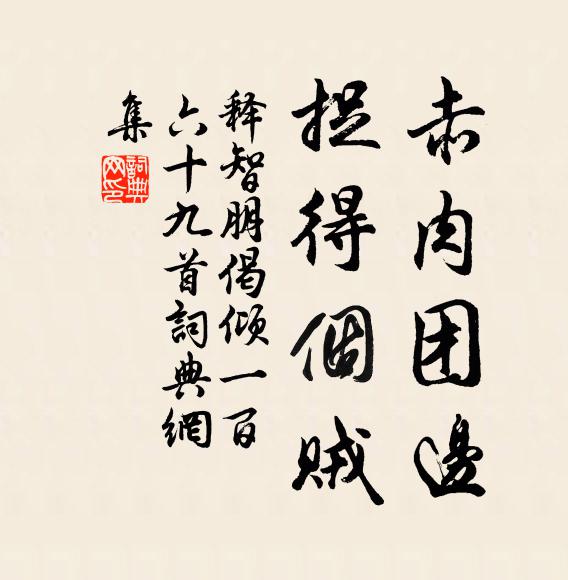 赤肉团邊
捉得個賊
释智朋偈倾一百
六十九首詞典網
集
詞典网印